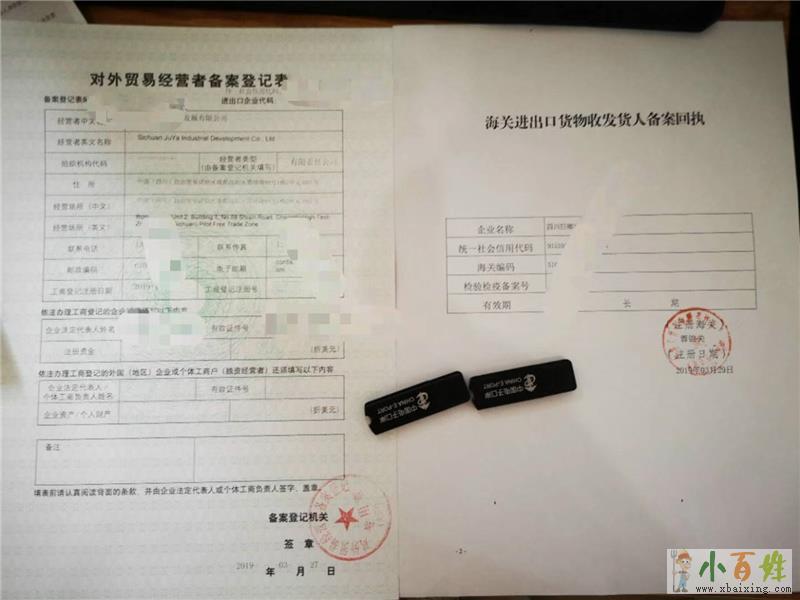 对外贸易经营者备案登记表
备案登记表编
进出口企业代码:
经营者中文
发展有限公司
经营者英文名称
Sichuan JuYa Industrial Development Co., Ltd
组织机构代码
经营者类型
(由备案登记机关填写)
有限责任公司
住 所
经营场所(中文)
经营场所(英文)
Unit 2, Building 1, No.
Pilot Free Trade Zone
联系电话
联系传真
邮政编码
电子邮箱
工商登记注册日期
2019
工商登记注册号
依法办理工商登记的企业还须填写以下内容
企业法定代表人姓名
有效证件号
注册资金
(折美元)
依法办理工商登记的外国(地区)企业或个体工商户(独资经营者)还须填写以下内容
企业法定代表人/
个体工商负责人姓名
有效证件号
企业资产/个人财产
(折美元)
备注
填表前请认真阅读背面的条款,并由企业法定代表人或个体工商负责人签字、盖章。
备案登记机关
签 章
2019 年 03 月 27 日
海关进出口货物收发货人备案回执
企业名称
统一社会信用代码
海关编码
检验检疫备案号
有效期
长 期
注册海关
蓉锦关
(注册日期)
2019年03月29日
中国电子口岸
CHINA E-PORT
中国电子口岸
CHINA E-PORT
- 2 -
小百姓
www.xbaixing.com